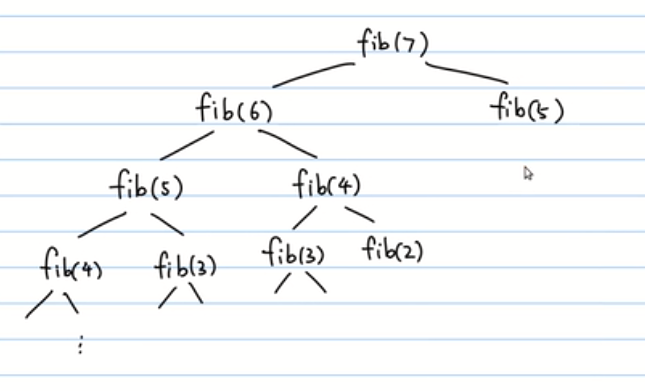 fib(7)
fib(6) fib(5)
fib(5) fib(4)
fib(4) fib(3) fib(3) fib(2)
⋮